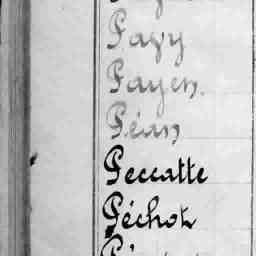 Pavy
Payen.
Péan
Peccatte
Péchot